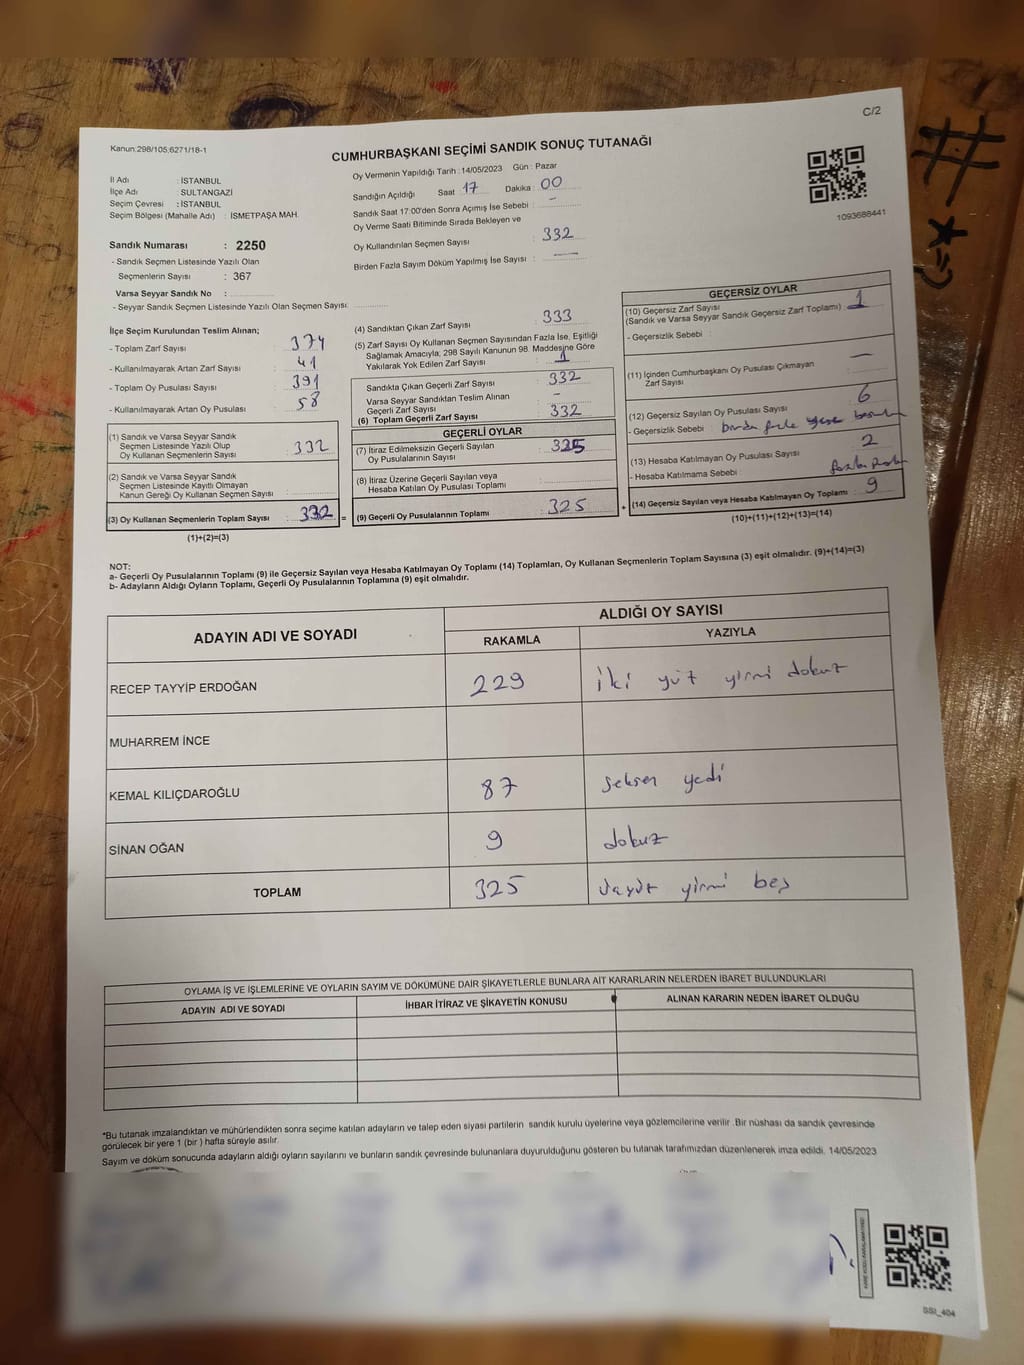 C/2
Kanun:298/105;6271/18-1
CUMHURBAŞKANI SEÇİMİ SANDIK SONUÇ TUTANAĞI
İl Adı : İSTANBUL
İlçe Adı : SULTANGAZİ
Seçim Çevresi : İSTANBUL
Seçim Bölgesi (Mahalle Adı) : İSMETPAŞA MAH.
Sandık Numarası : 2250
- Sandık Seçmen Listesinde Yazılı Olan
Seçmenlerin Sayısı : 367
Varsa Seyyar Sandık No :
- Seyyar Sandık Seçmen Listesinde Yazılı Olan Seçmen Sayısı:
Oy Vermenin Yapıldığı Tarih : 14/05/2023 Gün : Pazar
Sandığın Açıldığı Saat 17 Dakika : 00
Sandık Saat 17:00'den Sonra Açımış İse Sebebi : -
Oy Verme Saati Bitiminde Sırada Bekleyen ve
Oy Kullandırılan Seçmen Sayısı : 332
Birden Fazla Sayım Döküm Yapılmış İse Sayısı : —
1093688441
İlçe Seçim Kurulundan Teslim Alınan;
- Toplam Zarf Sayısı : 374
- Kullanılmayarak Artan Zarf Sayısı : 41
- Toplam Oy Pusulası Sayısı : 391
- Kullanılmayarak Artan Oy Pusulası : 58
(1) Sandık ve Varsa Seyyar Sandık
Seçmen Listesinde Yazılı Olup
Oy Kullanan Seçmenlerin Sayısı : 332
(2) Sandık ve Varsa Seyyar Sandık
Seçmen Listesinde Kayıtlı Olmayan
Kanun Gereği Oy Kullanan Seçmen Sayısı :
(3) Oy Kullanan Seçmenlerin Toplam Sayısı : 332 =
(1)+(2)=(3)
(4) Sandıktan Çıkan Zarf Sayısı : 333
(5) Zarf Sayısı Oy Kullanan Seçmen Sayısından Fazla İse, Eşitliği
Sağlamak Amacıyla; 298 Sayılı Kanunun 98. Maddesine Göre
Yakılarak Yok Edilen Zarf Sayısı : 1
Sandıkta Çıkan Geçerli Zarf Sayısı : 332
Varsa Seyyar Sandıktan Teslim Alınan
Geçerli Zarf Sayısı : -
(6) Toplam Geçerli Zarf Sayısı : 332
GEÇERLİ OYLAR
(7) İtiraz Edilmeksizin Geçerli Sayılan
Oy Pusulalarının Sayısı : 325
(8) İtiraz Üzerine Geçerli Sayılan veya
Hesaba Katılan Oy Pusulası Toplamı :
(9) Geçerli Oy Pusulalarının Toplamı : 325 +
GEÇERSİZ OYLAR
(10) Geçersiz Zarf Sayısı
(Sandık ve Varsa Seyyar Sandık Geçersiz Zarf Toplamı) : 1
- Geçersizlik Sebebi :
(11) İçinden Cumhurbaşkanı Oy Pusulası Çıkmayan
Zarf Sayısı : —
(12) Geçersiz Sayılan Oy Pusulası Sayısı : 6
- Geçersizlik Sebebi : birden fazla yere
(13) Hesaba Katılmayan Oy Pusulası Sayısı : 2
- Hesaba Katılmama Sebebi : fazla
(14) Geçersiz Sayılan veya Hesaba Katılmayan Oy Toplamı : 9
(10)+(11)+(12)+(13)=(14)
NOT:
a- Geçerli Oy Pusulalarının Toplamı (9) ile Geçersiz Sayılan veya Hesaba Katılmayan Oy Toplamı (14) Toplamları, Oy Kullanan Seçmenlerin Toplam Sayısına (3) eşit olmalıdır. (9)+(14)=(3)
b- Adayların Aldığı Oyların Toplamı, Geçerli Oy Pusulalarının Toplamına (9) eşit olmalıdır.
ADAYIN ADI VE SOYADI ALDIĞI OY SAYISI
RAKAMLA YAZIYLA
RECEP TAYYİP ERDOĞAN 229 iki yüz yirmi dokuz
MUHARREM İNCE
KEMAL KILIÇDAROĞLU 87 seksen yedi
SİNAN OĞAN 9 dokuz
TOPLAM 325 üçyüz yirmi beş
OYLAMA İŞ VE İŞLEMLERİNE VE OYLARIN SAYIM VE DÖKÜMÜNE DAİR ŞİKAYETLERLE BUNLARA AİT KARARLARIN NELERDEN İBARET BULUNDUKLARI
ADAYIN ADI VE SOYADI İHBAR İTİRAZ VE ŞİKAYETİN KONUSU ALINAN KARARIN NEDEN İBARET OLDUĞU
*Bu tutanak imzalandıktan ve mühürlendikten sonra seçime katılan adayların ve talep eden siyasi partilerin sandık kurulu üyelerine veya gözlemcilerine verilir .Bir nüshası da sandık çevresinde
görülecek bir yere 1 (bir ) hafta süreyle asılır.
Sayım ve döküm sonucunda adayların aldığı oyların sayılarını ve bunların sandık çevresinde bulunanlara duyurulduğunu gösteren bu tutanak tarafımızdan düzenlenerek imza edildi. 14/05/2023
SSI_404